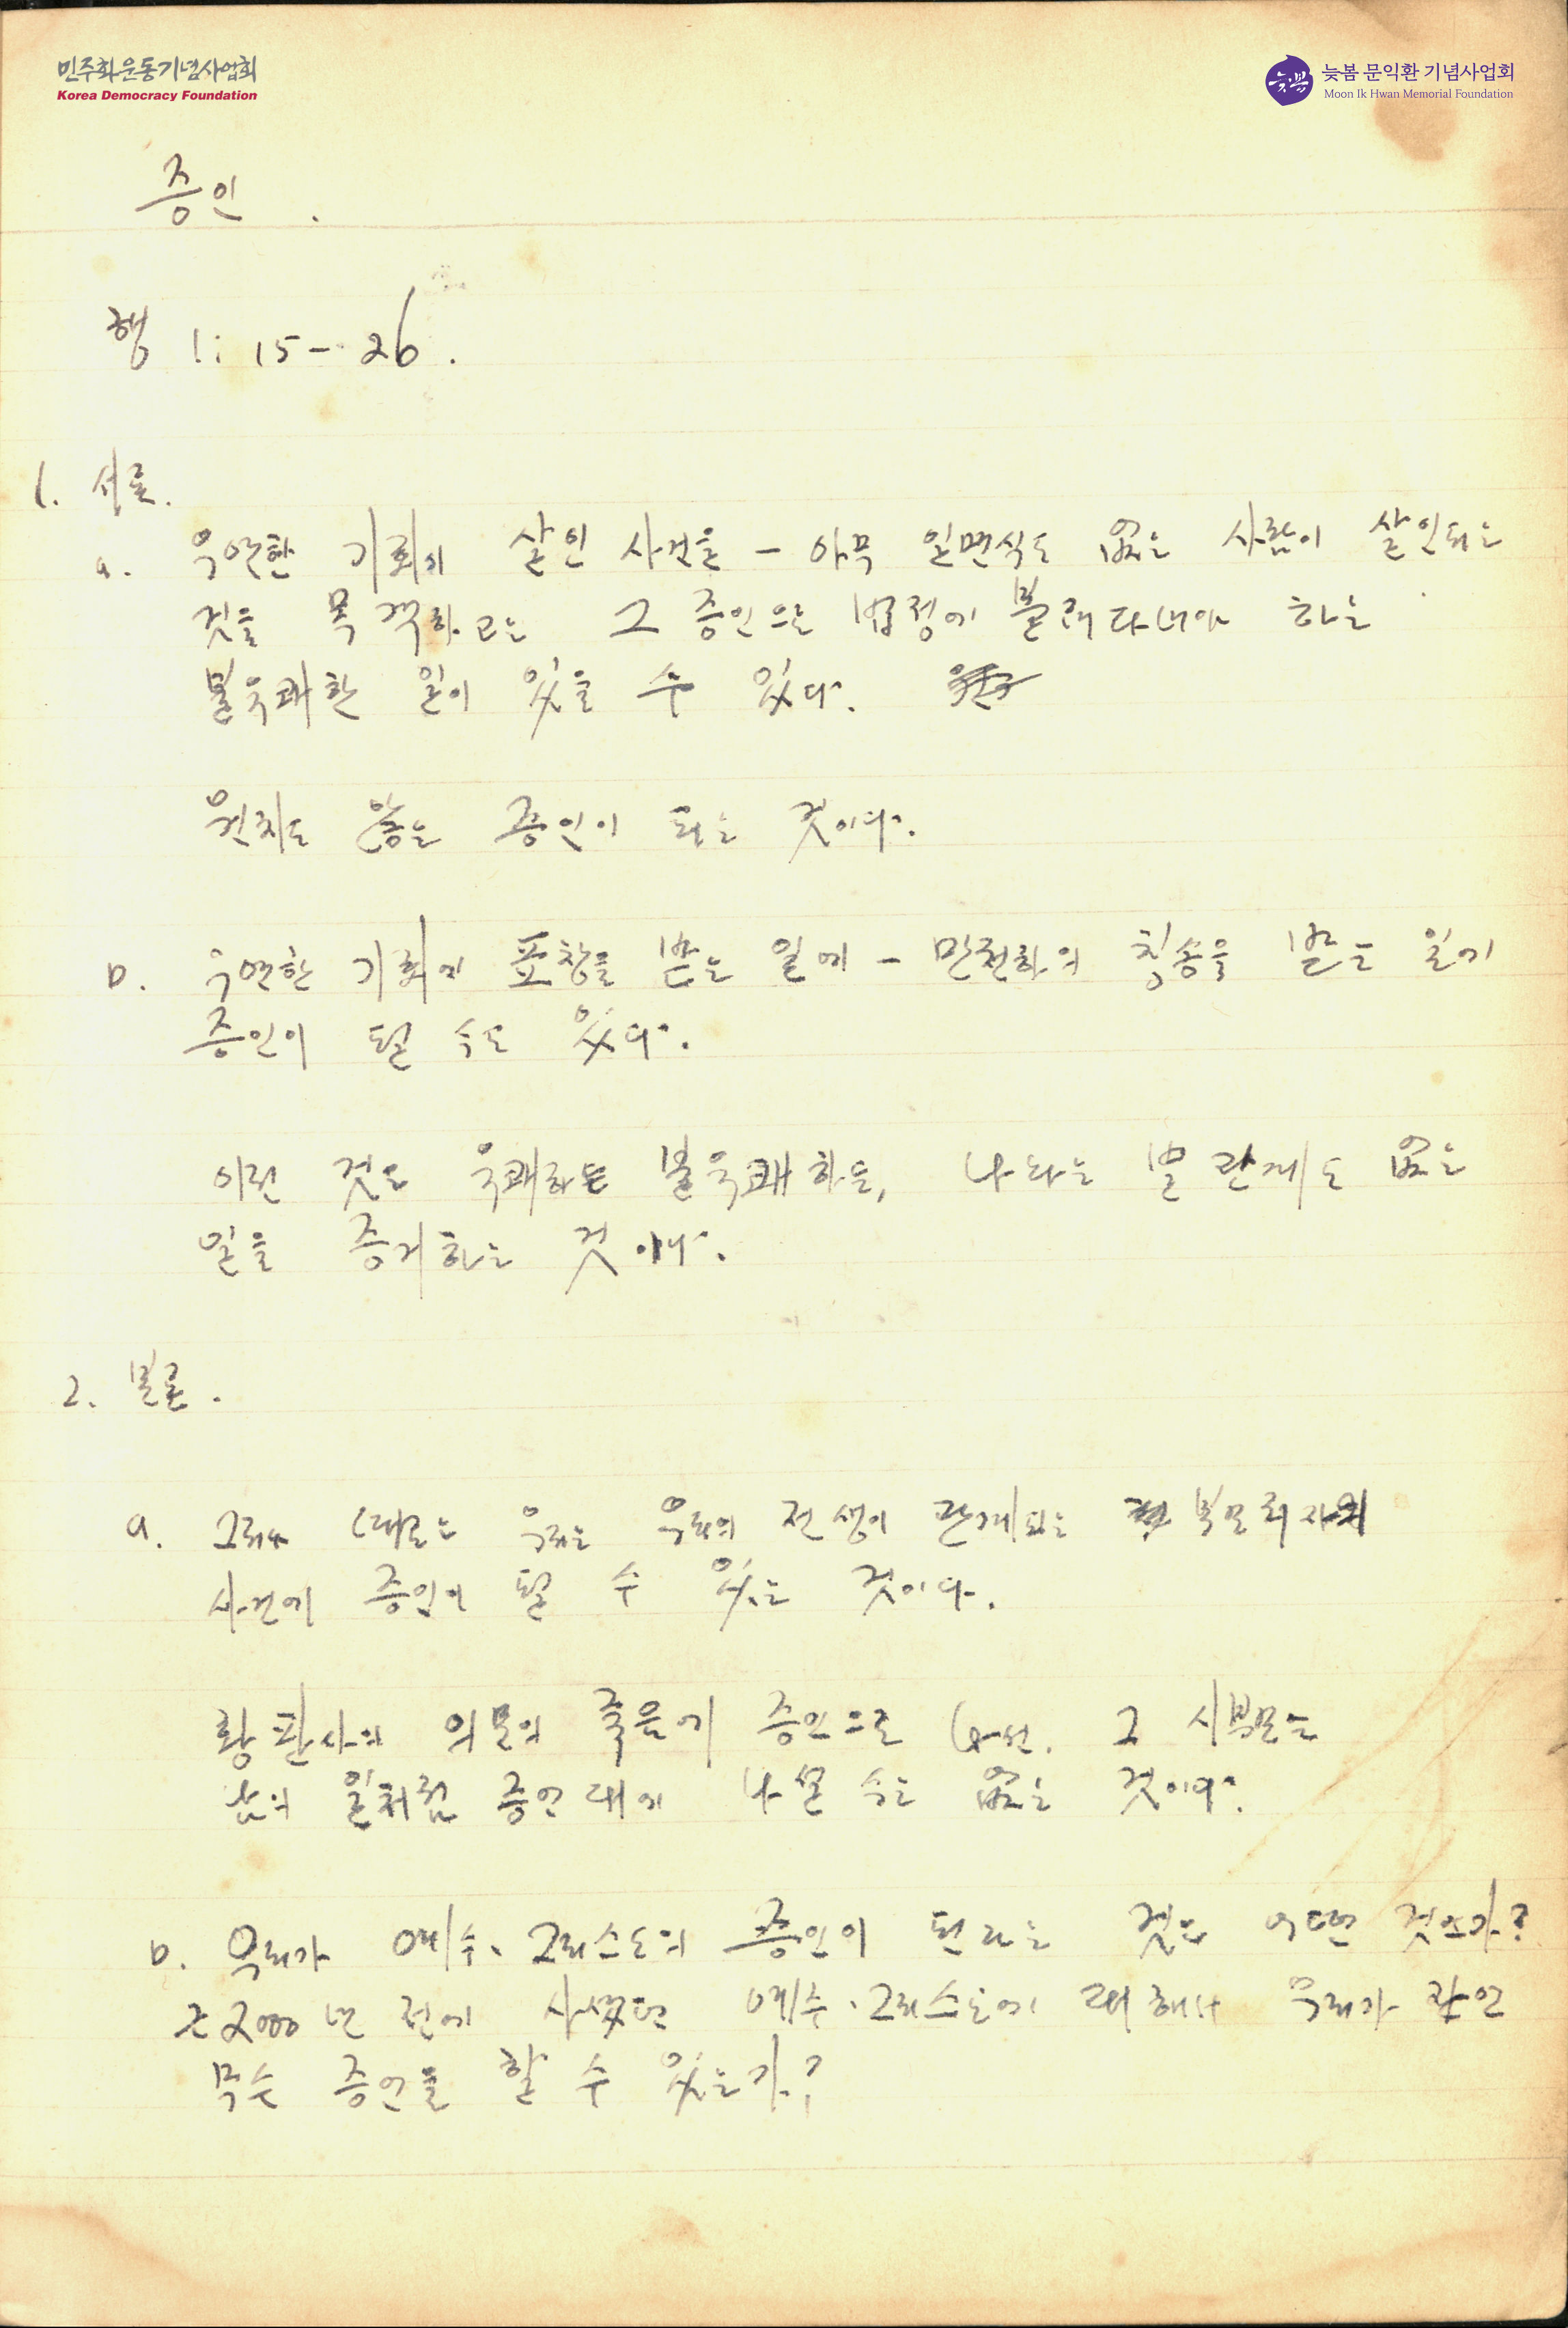 민주화운동기념사업회
Korea Democracy Foundation
늦봄 문익환 기념사업회
Moon Ik Hwan Memorial Foundation
증인.
행 1: 15 - 26.
1. 서론.
a. 우연한 기회에 살인 사건을 - 아무 일면식도 없는 사람이 살인되는
것을 목격하고는 그 증인으로 법정에 불려다녀야 하는
불유쾌한 일이 있을 수 있다.
원치도 않는 증인이 되는 것이다.
b. 우연한 기회에 표창을 받는 일에 - 만천하의 칭송을 받는 일에
증인이 될 수도 있다.
이런 것은 유쾌하든 불유쾌하든, 나와는 별 관계도 없는
일을 증거하는 것이다.
2. 본론.
a. 그러나 때로는 우리는 우리의 전생이 관계되는
사건에 증인이 될 수 있는 것이다.
황판사의 의 죽음에 증인으로 나선 그 시부모는
남의 일처럼 증언대에 나설 수는 없는 것이다.
b. 우리가 예수·그리스도의 증인이 된다는 것은 어떤 것인가?
근 2000년 전에 사셨던 예수·그리스도에 대해서 우리가
무슨 증언을 할 수 있는가?